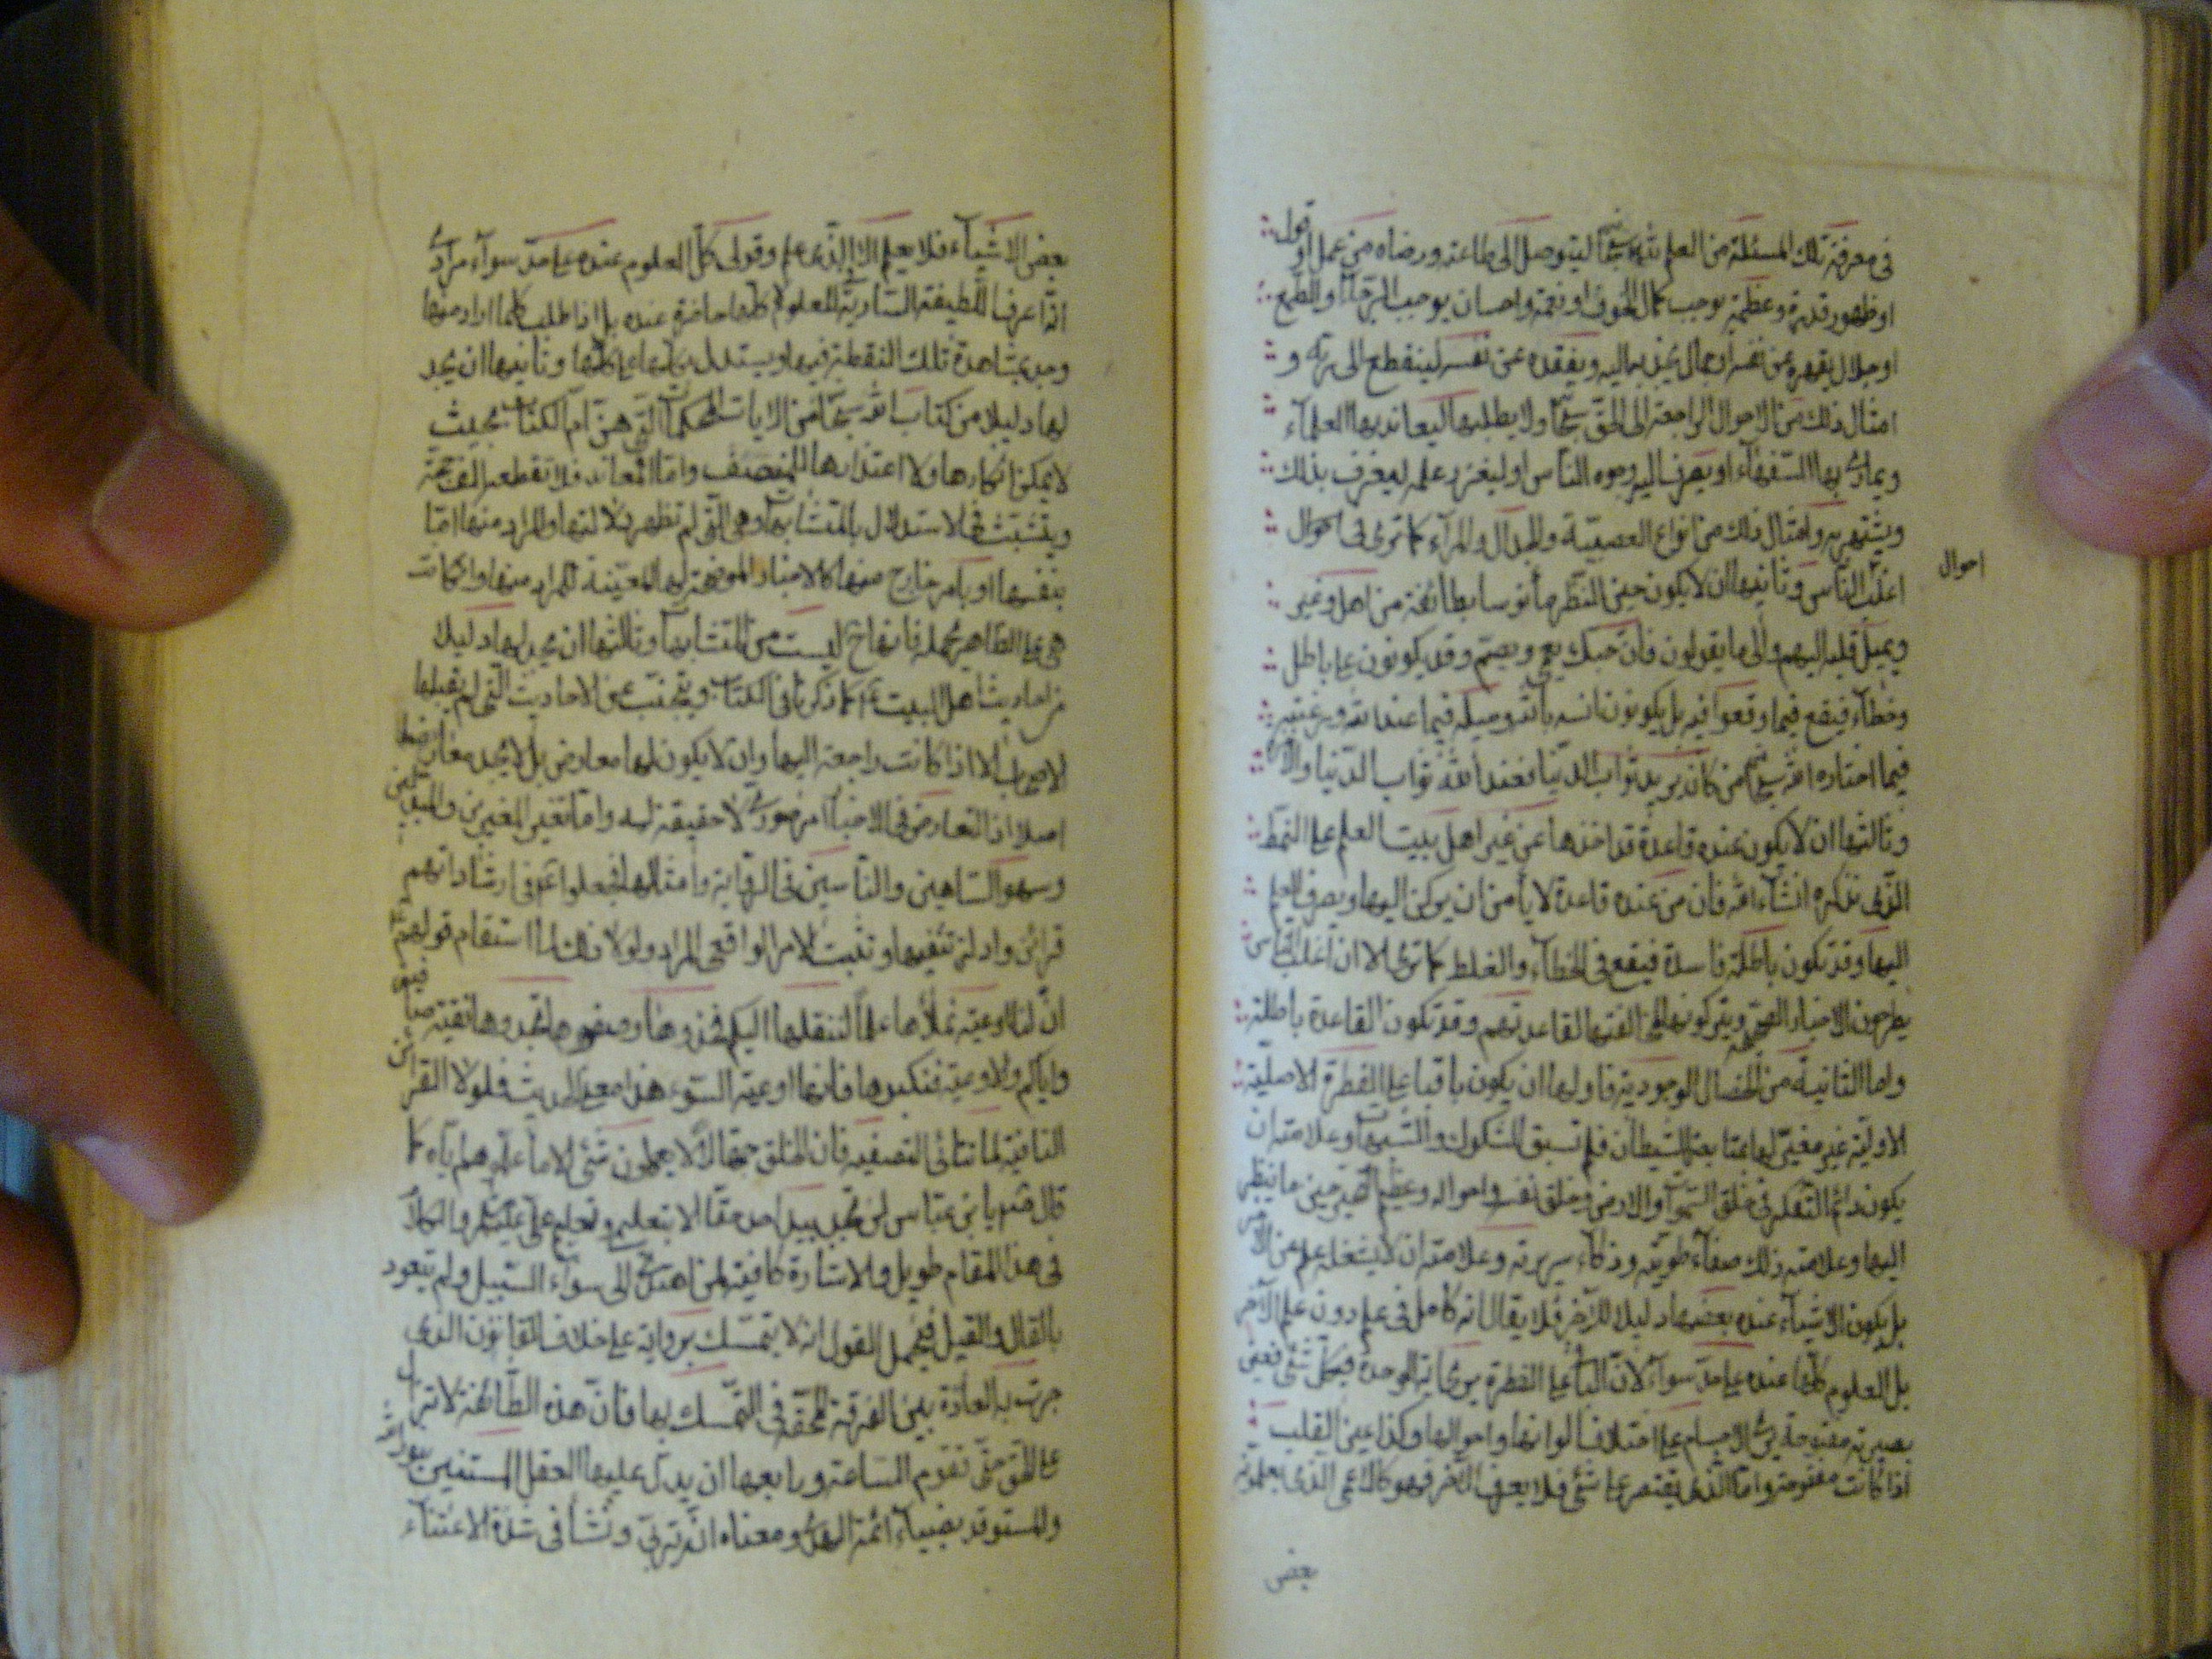 في معرفة تلك المسئلة من العلم بالله سبحانه ليتوصل الى طاعته ورضاه من عمل او قول
او ظهور قدرة وعظمة يوجب كمال الخوف او نعمة واحسان يوجب الرجاء والطمع
او جلال يقهره عن نفسه او جمال يجذبه اليه ويفقده عن نفسه لينقطع الى ربه و
امثال ذلك من الاحوال الراجعة الى الحق سبحانه ولا يطلبها ليعاند بها العلماء
ويمارى بها السفهاء او يصرف اليه وجوه الناس او ليغزر علمه ليعرف بذلك
ويشتهر به وامثال ذلك من انواع العصبية والجدال والمرآء كما ترى في احوال
احوال
اغلب الناس وثانيها ان لا يكون حين النظر مأنوسا بطائفة من اهل وغير
ويميل قلبه اليهم والى ما يقولون فان حبك يعمى ويصم وقد يكونون على باطل
وخطاء فيقع فيما وقعوا فيه بل يكون انسه بالله وميله فيما عند الله ورغبته
فيما اختاره الله سبحانه من كان يريد ثواب الدنيا فعند الله ثواب الدنيا والآخرة
وثالثها ان لا يكون عنده قاعدة قد اخذها عن غير اهل بيت العلم على النمط
الذى نذكره انشاء الله فان من عنده قاعدة لا يأمن ان يركن اليها ويصرف العلم
اليها وقد تكون باطلة فاسدة فيقع في الخطاء والغلط كما ترى الا ان اغلب الناس
يطرحون الاخبار الصحيحة ويتركونها لمخالفتها لقاعدتهم وقد تكون القاعدة باطلة
واما الثانية من الخصال الوجودية فاولها ان يكون باقيا على الفطرة الاصلية
الاولية غير مغير لها بمتابعة الشيطان فلم تسبق الشكوك والشبهات وعلامته ان
يكون دائم التفكر في خلق السموات والارض وخلق نفسه واحواله وعظيم التحير حين ما ينظر
اليها وعلامة ذلك صفآء طويته وذكاء سريرته وعلامته ان لا يشغله علم عن الآخر
بل يكون الاشياء عنده بعضها دليلا للآخر فلا يقال انه كامل في علم دون علم الآخر
بل العلوم كلها عنده على حد سواء لان الباقى على الفطرة يرى آية الوحدة في كل شئ فعين
بصيرته مفتوحة يرى الاجسام على اختلاف الوانها واحوالها وكذا عين القلب
اذا كانت مفتوحة واما الذى يقتصر على شئ فلا يعرف الآخر فهو كالاعمى الذى يعلمونه
بعض
بعض الاشياء فلا يعلم الا الذى علم وقولى كل العلوم عنده على حد سواء مرادى
انه اعرف اللطيفة السارية للمعلوم لا كلها حاضرة عنده بل اذا طلب كلما اراد منها
وجد بمشاهدة تلك النقطة فيها ويستدل بكلها على كلها وثانيها ان يجد
لها دليلا من كتاب الله سبحانه من الايات المحكمات التى هن ام الكتاب بحيث
لا يمكن انكارها ولا اعتذارها للمنصف واما المعاند فلا تقطعه الف حجة
ويتشبث في الاستدلال بالمتشابهات وهى التى لم تظهر دلالتها والمراد منها اما
بنفسها او بامر خارج منها كالاخبار الموضحة لها المعينة للمراد منها وان كانت
هى على الظاهر مجملة فانها ح ليست من المتشابهات وثالثها ان يجد لها دليلا
من احاديث اهل البيت ع كما ذكرنا في الكتاب ويجتنب عن الاحاديث التى لم يقبلها
الاصحاب الا اذا كانت راجعة اليها وان لا يكون لها معارض بل لا يجد معارضا لها
اصلا اذ التعارض في الاخبار امر صورى لا حقيقة له واما تغيير المغيرين والمبدلين
وسهو الساهين والناسين في الرواية وامثالها فجعلوا ع في ارشاداتهم
قرائن وادلة تنفيها وتثبت الامر الواقعى المراد ولولا ذلك لما استقام قولهم
ان لنا اوعية نملأها علما لننقلها اليكم فخذوها وصفوها تجدوها نقية صافية
واياكم والاوعية فنكبوها فانها اوعية السوء هذا معنى الحديث فلولا القرائن
النافية لما تتأتى التصفية فان الخلق جهال لا يعلمون شئ الا ما علمهم
قال ع يا بن عباس لن تجد بيد احد حقا الا بتعليمى وتعليم على عليهما السلام والكلام
في هذا المقام طويل والاشارة كافية لمن اهتدى الى سواء السبيل ولم يتعود
بالقال والقيل فمجمل القول انه لا يتمسك برواية على خلاف القانون الذى
جرت به العادة بين الفرقة المحقة في التمسك بها فان هذه الطائفة لا تزال
على الحق حتى تقوم الساعة ورابعها ان يدل عليها العقل المستنير بنور الله
والمستوقد بضياء ائمة الهدى ومعناه انه تربى ونشأ في شدة الاعتناء